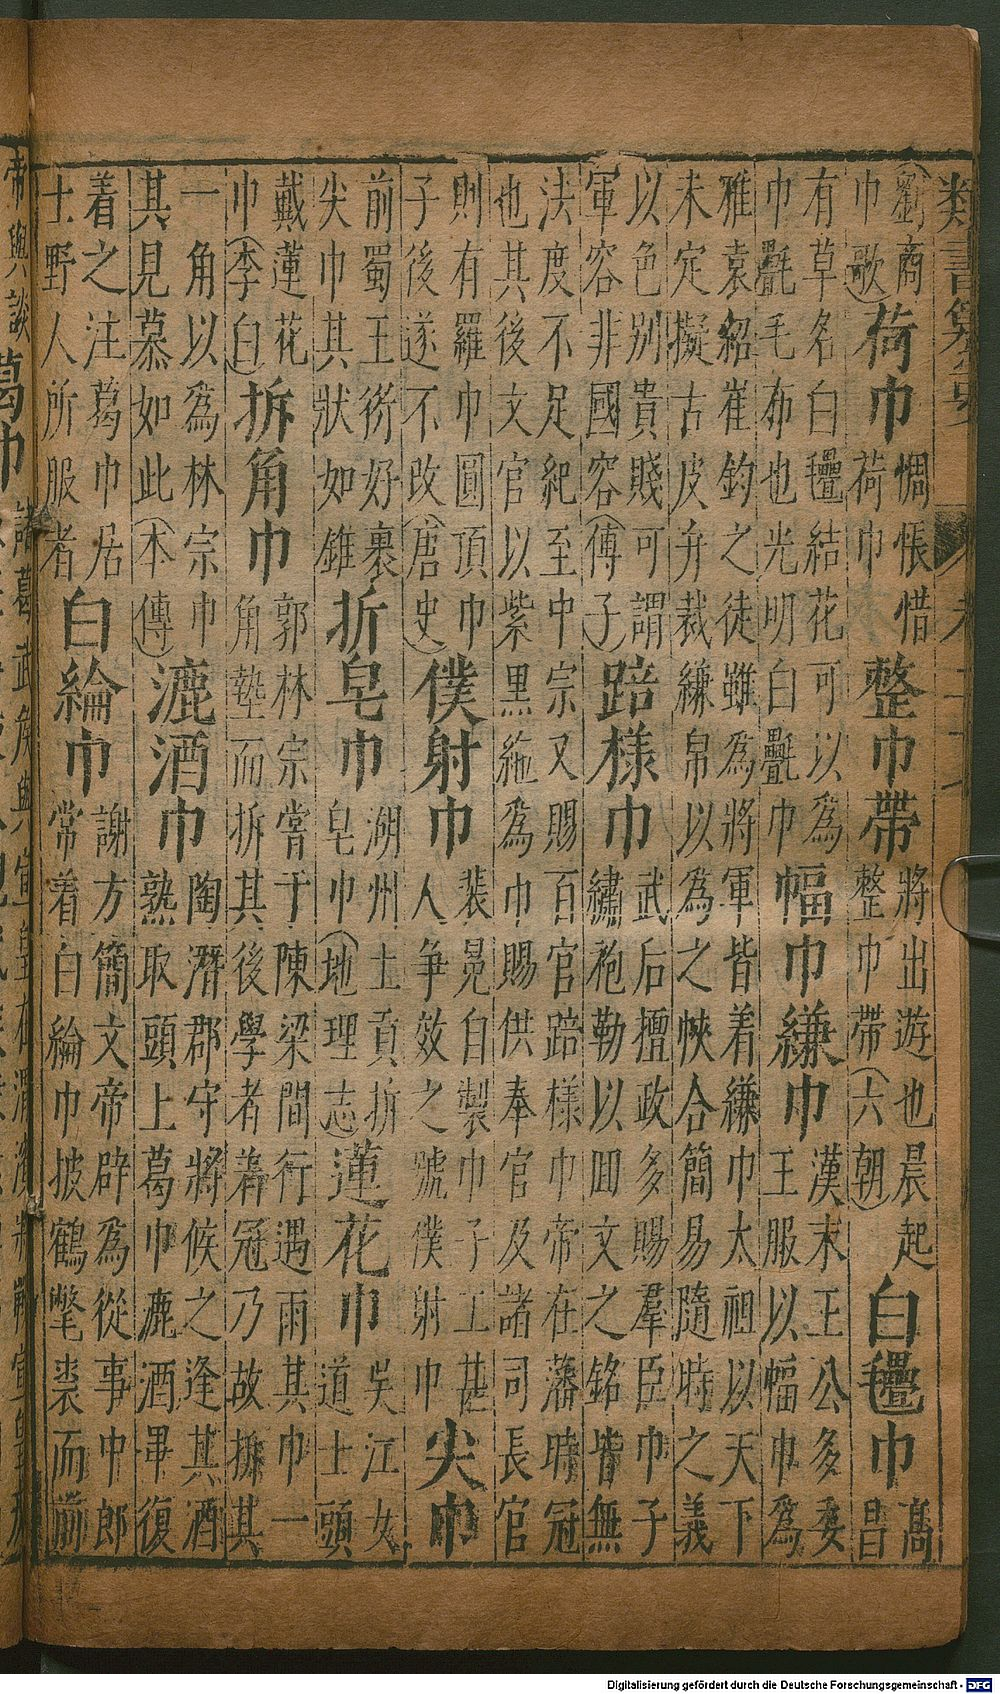 類書纂要
劉商
巾歌
荷巾
惆悵惜
荷巾
整巾帶
將出游也晨起
整巾帶(六朝)
白氎巾
高
昌
有草名白氎結花可以為
巾氎毛布也光明白氎巾
幅巾縑巾
漢末王公多委
王服以幅巾為
雅袁紹崔鈞之徒雖為將軍皆着縑巾太祖以天下
未定擬古皮弁裁縑帛以為之㡊合簡易隨時之義
以色別貴賤可謂
軍容非國容(傅子)
踣様巾
武后擅政多賜羣臣巾子
繡袍勒以囬文之銘皆無
法度不足紀至中宗又賜百官踣様巾帝在藩時冠
也其後文官以紫黑絁為巾賜供奉官及諸司長官
則有羅巾圓頂巾
子後遂不改(唐史)
僕射巾
裴冕自製巾子工甚
人爭效之號僕射巾
尖巾
前蜀王衒好裹
尖巾其狀如錐
折皂巾
湖州土貢折
皂巾(地理志)
蓮花巾
吳江女
道士頭
戴蓮花
巾(李白)
拆角巾
郭林宗嘗于陳梁間行遇雨其巾一
角墊而拆其後學者着冠乃故拆其
一角以為林宗巾
其見慕如此(本傳)
漉酒巾
陶潛郡守將候之逢其酒
熟取頭上葛巾漉酒畢復
着之注葛巾居
士野人所服者
白綸巾
謝方簡文帝辟為從事中郎
常着白綸巾披鶴氅裘而前
帝與談
葛巾
諸葛武侯與宣皇在渭濱將戰宣皇
Digitalisierung gefördert durch die Deutsche Forschungsgemeinschaft - DFG